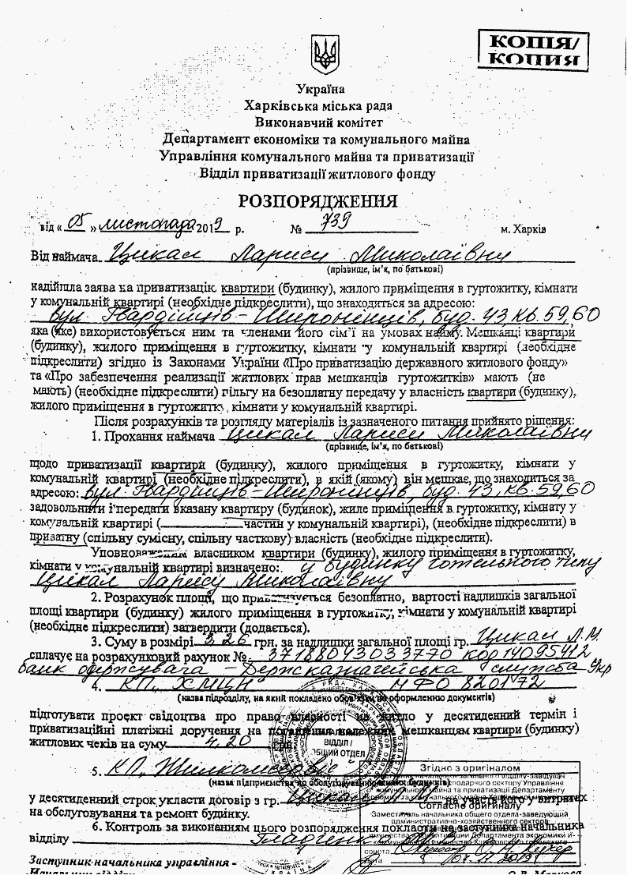 КОПІЯ/
КОПИЯ
Україна
Харківська міська рада
Виконавчий комітет
Департамент економіки та комунального майна
Управління комунального майна та приватизації
Відділ приватизації житлового фонду
РОЗПОРЯДЖЕННЯ
від « 05 » листопада 2019 р. № 739 м. Харків
Від наймача Цикал Лариси Миколаївни
(прізвище, ім'я, по батькові)
надійшла заява на приватизацію квартири (будинку), жилого приміщення в гуртожитку, кімнати
у комунальній квартирі (необхідне підкреслити), що знаходиться за адресою:
вул. Гвардійців-Широнінців, буд. 43, кв. 59,60
яка (яке) використовується ним та членами його сім'ї на умовах найму. Мешканці квартири
(будинку), жилого приміщення в гуртожитку, кімнати у комунальній квартирі (необхідне
підкреслити) згідно із Законами України «Про приватизацію державного житлового фонду»
та «Про забезпечення реалізації житлових прав мешканців гуртожитків» мають (не
мають) (необхідне підкреслити) пільгу на безоплатну передачу у власність квартири (будинку),
жилого приміщення в гуртожитку, кімнати у комунальній квартирі.
Після розрахунків та розгляду матеріалів із зазначеного питання прийнято рішення:
1. Прохання наймача Цикал Лариси Миколаївни
(прізвище, ім'я, по батькові)
щодо приватизації квартири (будинку), жилого приміщення в гуртожитку, кімнати у
комунальній квартирі (необхідне підкреслити), в якій (якому) він мешкає, що знаходиться за
адресою: вул. Гвардійців-Широнінців, буд. 43, кв. 59,60
задовольнити і передати вказану квартиру (будинок), жиле приміщення в гуртожитку, кімнату у
комунальній квартирі (________ частин у комунальній квартирі), (необхідне підкреслити) в
приватну (спільну сумісну, спільну часткову) власність (необхідне підкреслити).
Уповноваженим власником квартири (будинку), жилого приміщення в гуртожитку,
кімнати у комунальній квартирі визначено: у будинку готельного типу
Цикал Ларису Миколаївну
2. Розрахунок площі, що приватизується безоплатно, вартості надлишків загальної
площі квартири (будинку) жилого приміщення в гуртожитку, кімнати у комунальній квартирі
(необхідне підкреслити) затвердити (додається).
3. Суму в розмірі 3,26 грн. за надлишки загальної площі гр. Цикал Л.М.
сплачує на розрахунковий рахунок № 37188043033770 код 14095412
банк офертувача - Держказначейська служба Укр
4. КП "ХМЦН" МФО 820172
(назва підрозділу, на який покладено обов'язки по оформленню документів)
підготувати проект свідоцтва про право власності на житло у десятиденний термін і
приватизаційні платіжні доручення на погашення належних мешканцям квартири (будинку)
житлових чеків на суму 4,20 грн.
ВІДДІЛ /
ОБЩИЙ ОТДЕЛ
5. КП "Жилкомсервіс"
(назва підприємства по обслуговуванню жилих будинків)
Згідно з оригіналом
Согласно оригиналу
Заместитель начальника общего отдела-заведующий
у десятиденний строк укласти договір з гр. Цикал Л.М. на участь його у витратах
на обслуговування та ремонт будинку.
6. Контроль за виконанням цього розпорядження покласти на заступника начальника
відділу
Заступник начальника управління -